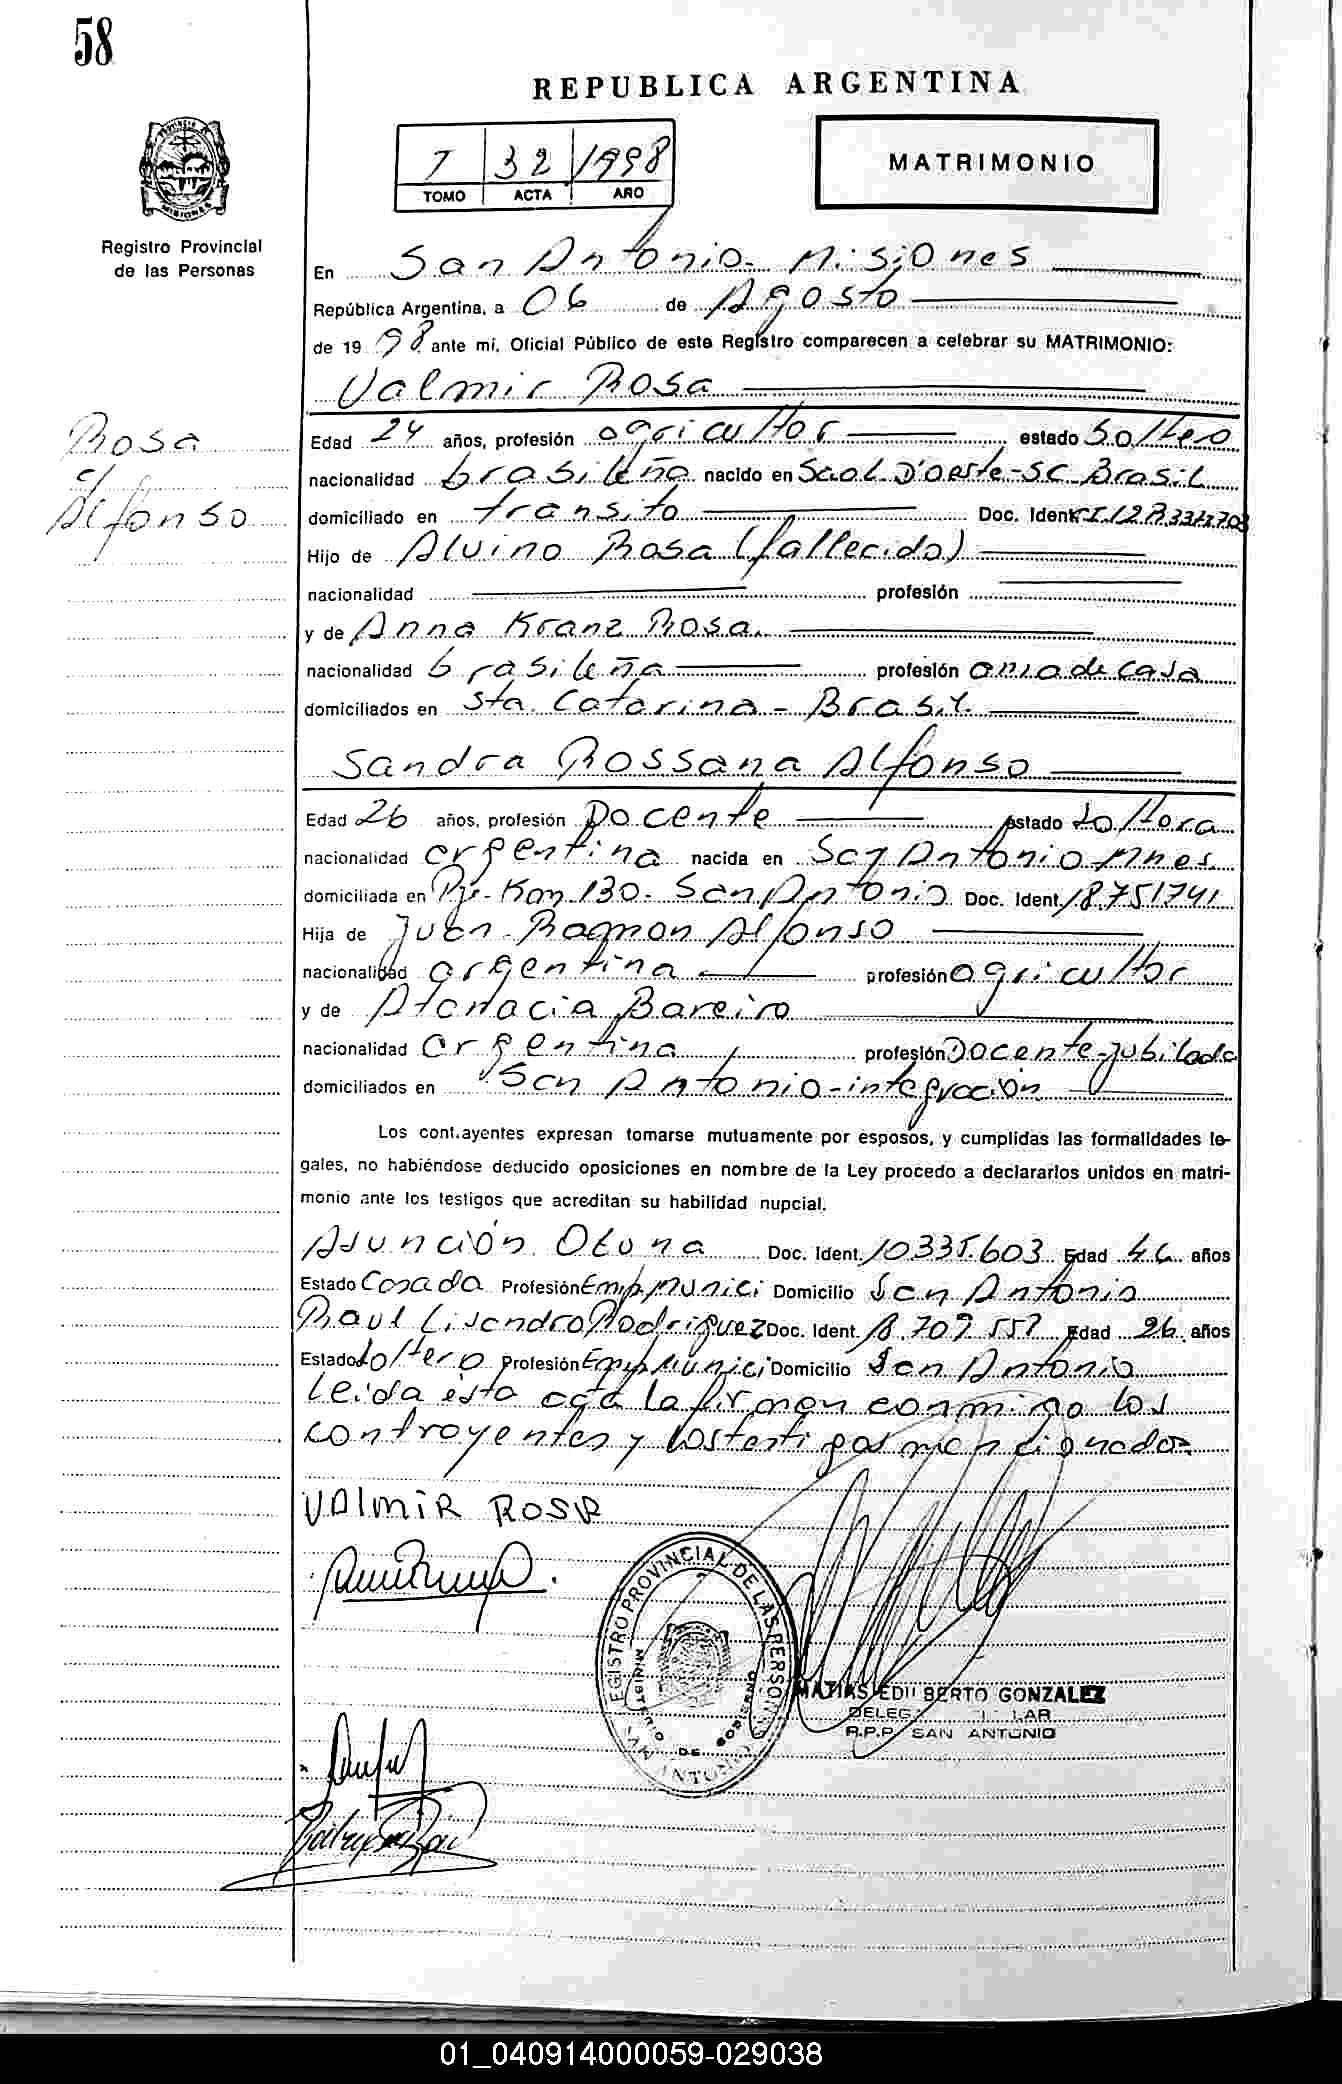 58
REPUBLICA ARGENTINA
PROVINCIA
MISIONES
Registro Provincial
de las Personas
I 32 1998
TOMO ACTA AÑO
MATRIMONIO
En San Antonio- Misiones
República Argentina, a 06 de Agosto
de 1998 ante mí, Oficial Público de este Registro comparecen a celebrar su MATRIMONIO:
Valmir Rosa
Rosa
c/
Alfonso
Edad 24 años, profesión agricultor estado Soltero
nacionalidad brasileña nacido en D'oeste-SC-Brasil
domiciliado en transito Doc. Ident.
Hijo de Alvino Rosa (fallecido)
nacionalidad profesión
y de Anna Kranz Rosa.
nacionalidad brasileña profesión ama de casa
domiciliados en Sta. Catarina - Brasil.
Sandra Rossana Alfonso
Edad 26 años, profesión Docente estado soltera
nacionalidad argentina nacida en San Antonio Mnes.
domiciliada en Pje. Km 130- San Antonio Doc. Ident. 18.751741
Hija de Juan Ramon Alfonso
nacionalidad argentina profesión agricultor
y de Atanacia Bareiro
nacionalidad argentina profesión Docente-jubilada
domiciliados en San Antonio-integración
Los cont.ayentes expresan tomarse mutuamente por esposos, y cumplidas las formalidades le-
gales, no habiéndose deducido oposiciones en nombre de la Ley procedo a declararlos unidos en matri-
monio ante los testigos que acreditan su habilidad nupcial.
Asunción Doc. Ident. 10335.603 Edad años
Estado Casada Profesión Emp. Munici Domicilio San Antonio
Raul Lisandro Rodriguez Doc. Ident. Edad 26 años
Estado soltero Profesión Emp. Munici Domicilio San Antonio
Leida esta acta la firman conmigo los
contrayentes y los testigos mencionados
VAlmiR ROSA
REGISTRO PROVINCIAL DE LAS PERSONAS
MINISTERIO DE GOBIERNO
SAN ANTONIO
MATIAS EDILBERTO GONZALEZ
R.P.P. SAN ANTONIO
01_040914000059-029038